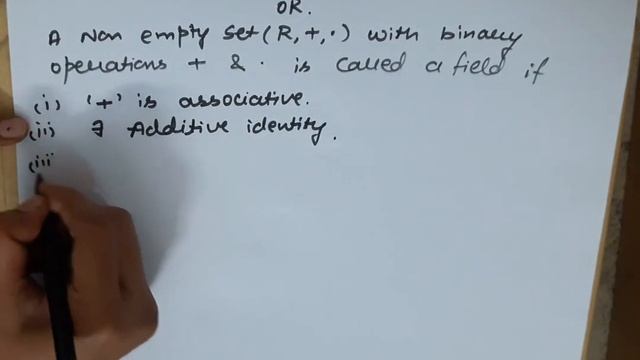 OR.
A Non empty set (R, +, ·) with binary
operations + & · is called a field if
(i) '+' is associative.
(ii) ∃ Additive identity.
(iii